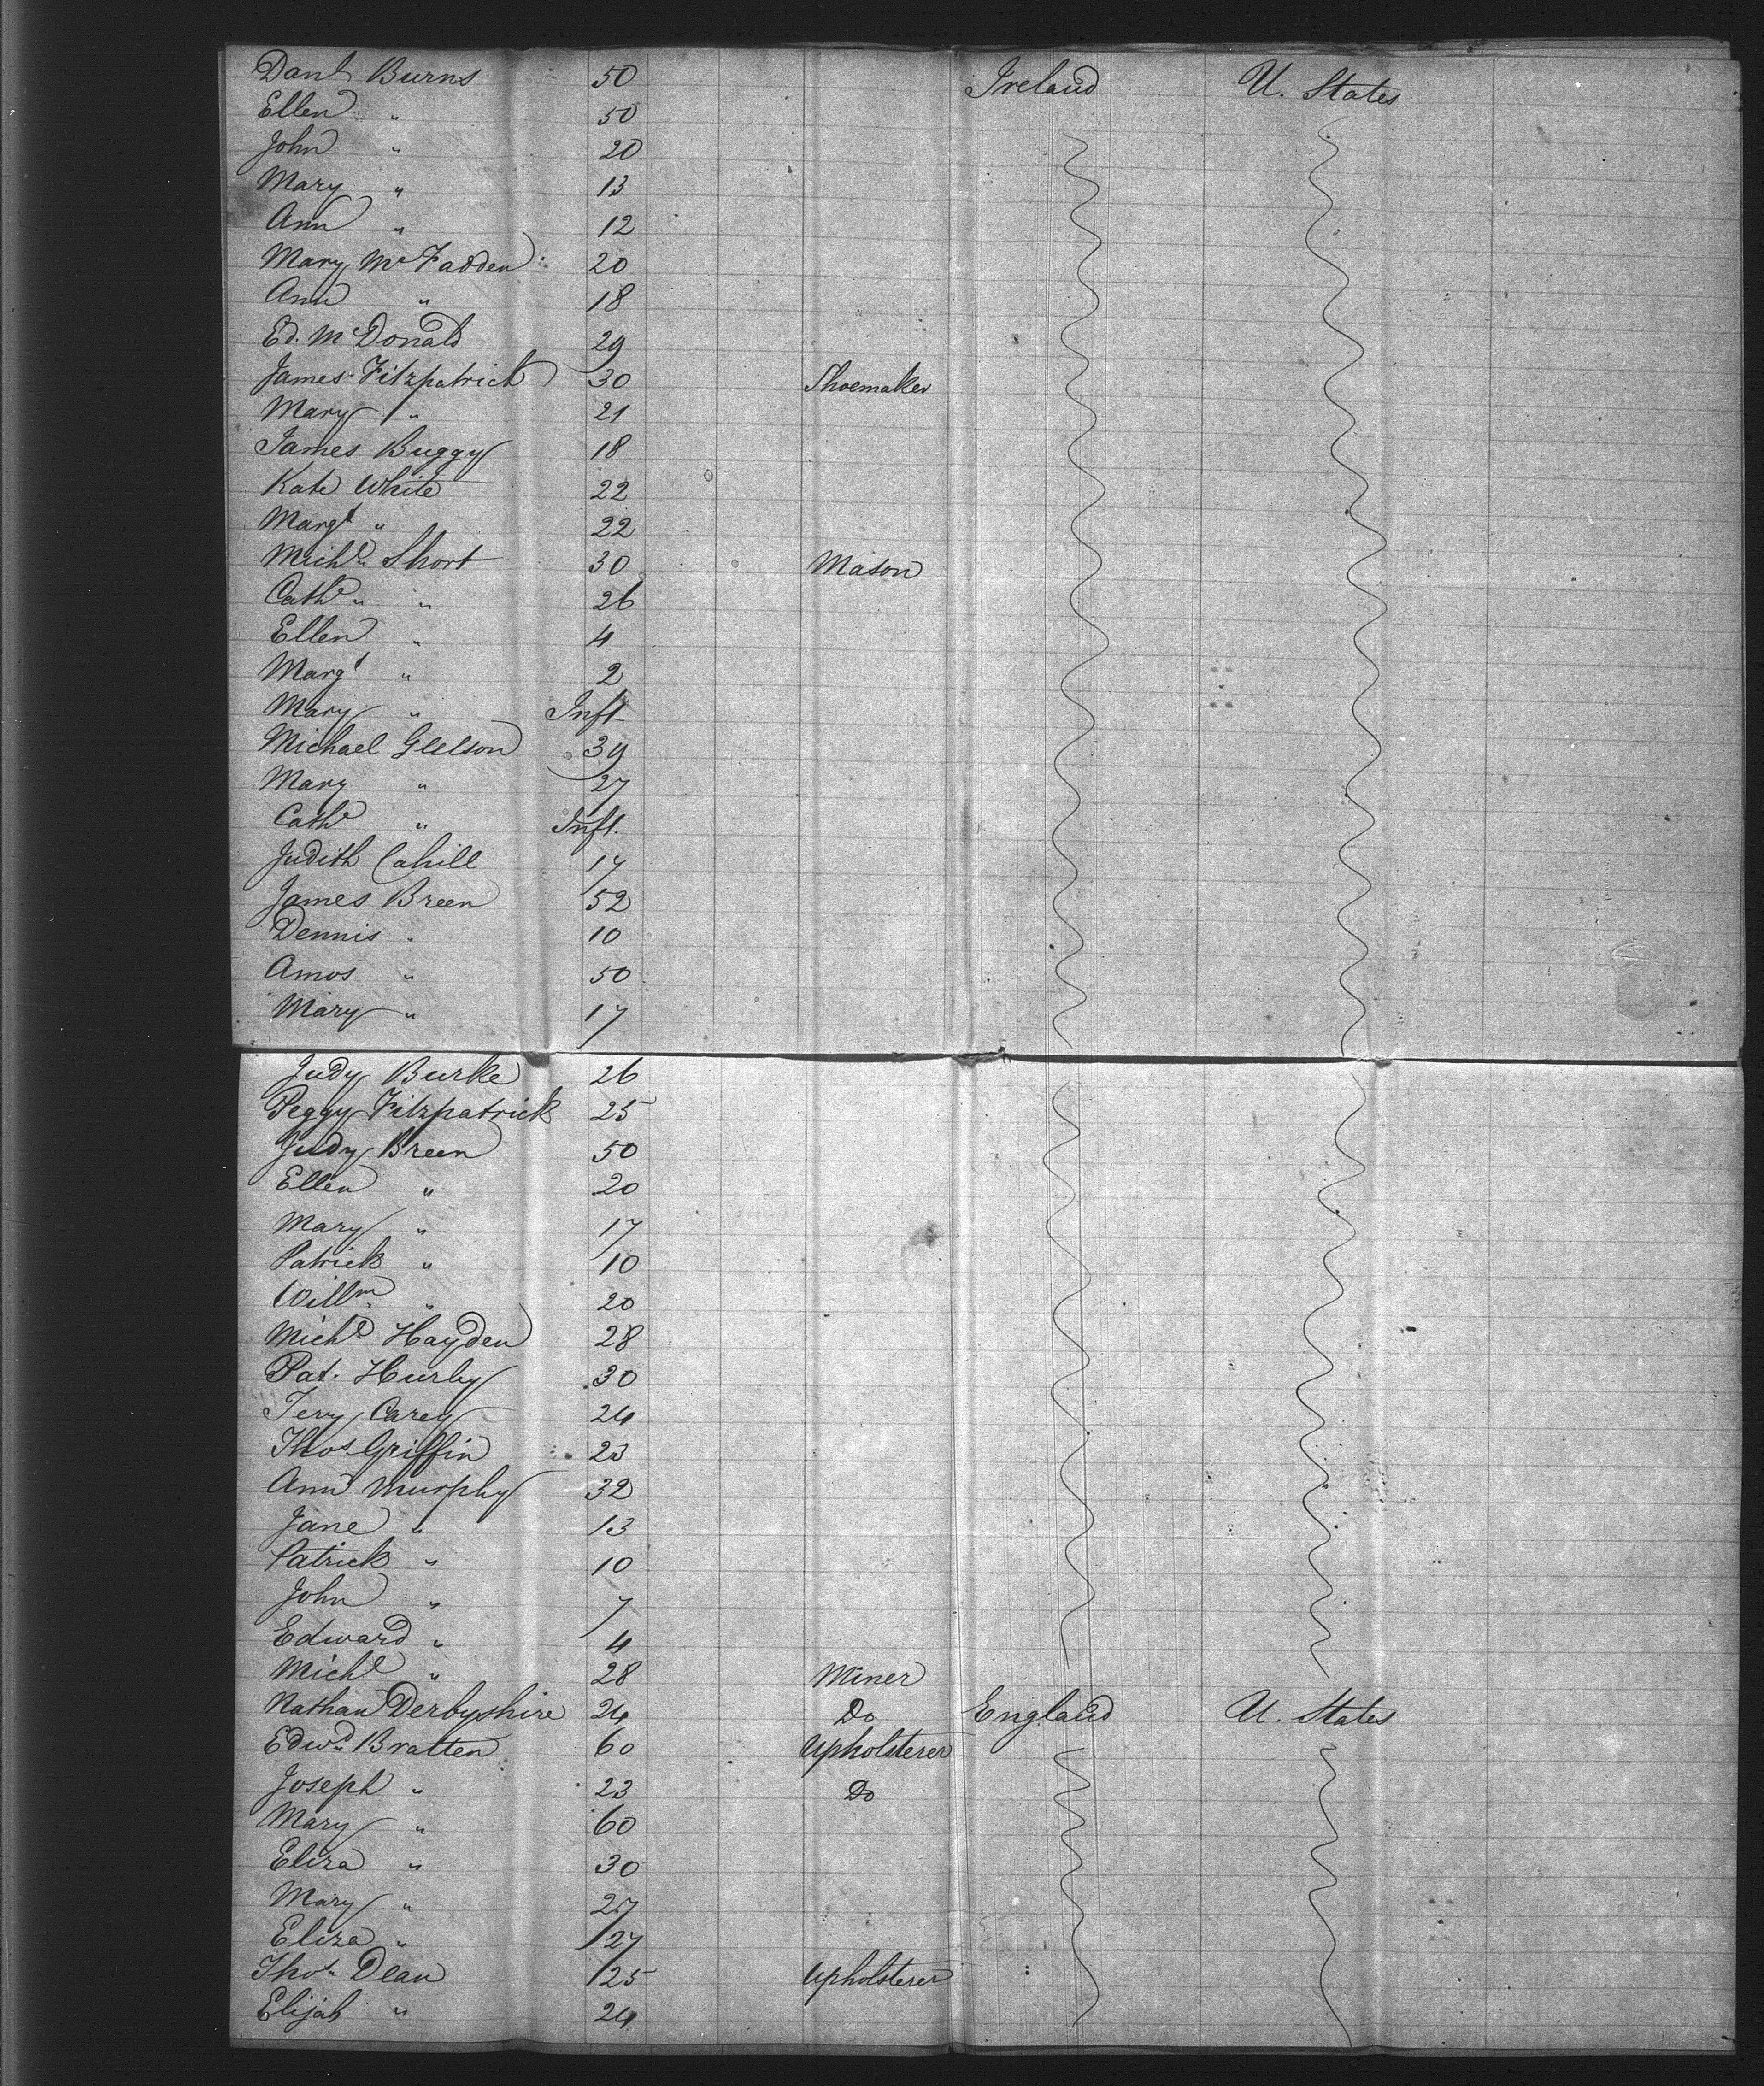 Danl Burns 50 Ireland U. States
Ellen " 50
John " 20
Mary " 13
Ann " 12
Mary McFadden 20
Ann " 18
Ed. McDonald 29
James Fitzpatrick 30 Shoemaker
Mary " 21
James Buggy 18
Kate White 22
Margt " 22
Michl Short 30 Mason
Cathe " 26
Ellen " 4
Margt " 2
Mary " Inft
Michael Gleeson 39
Mary " 27
Cathe " Inft.
Judith Cahill 17
James Breen 52
Dennis " 10
Amos " 50
Mary " 17
Judy Burke 26
Peggy Fitzpatrick 25
Judy Breen 50
Ellen " 20
Mary " 17
Patrick " 10
Willm " 20
Michl Hayden 28
Pat. Hurley 30
Terry Carey 24
Thos Griffin 23
Ann Murphy 32
Jane " 13
Patrick " 10
John " 7
Edward " 4
Michl " 28 Miner
Nathan Derbyshire 24 Do England U. States
Edwd Bratten 60 Upholsterer
Joseph " 23 Do
Mary " 60
Eliza " 30
Mary " 27
Eliza " 27
Thos Dean 25 Upholsterer
Elijah " 24